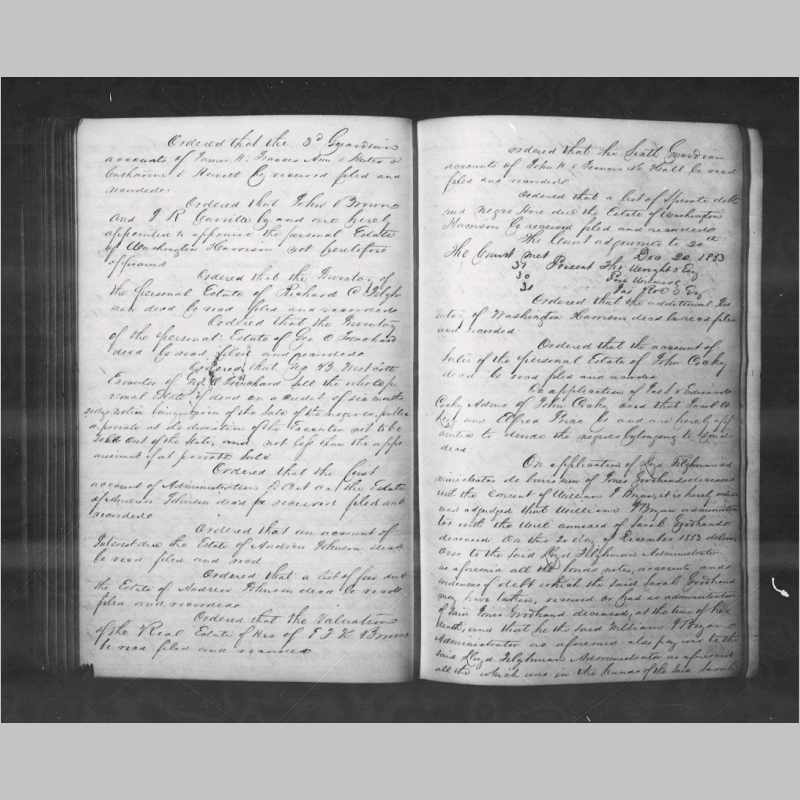 Ordered that the 3d Guardian
accounts of James W. Frances Ann & Walter &
Catharine & Harriet C received filed and
recorded
Ordered that John Browne
and J R be and are hereby
appointed to appraise the personal Estate
of Washington Harrison not heretofore
appraised
Ordered that the Inventory of
the personal Estate of Richard C Tilgh
man decd be read filed and recorded
Ordered that the Inventory
of the personal Estate of Geo C Trenchard
decd be read filed and recorded
Ordered that Westcott
Executor of Trenchard sell the whole per
sonal Estate of decd on a credit of six months
notice being given of the Sale of the negroes, public
or private at the discretion of the Executor not to be
Sold out of the State, and not less than the appr
aisement if at private Sale
Ordered that the first
account of Administration D Dent on the Estate
of Andrew Johnson decd be received filed and
recorded
Ordered that an account of
Interest due the Estate of Andrew Johnson decd
be read filed and recd
Ordered that a list of fees due
the Estate of Andrew Johnson decd be read
filed and recorded
Ordered that the Valuation
of the Real Estate of of T J H Browne
be read filed and recorded
ordered that the Sixth Guardian
accounts of John W & Thomas Heath be read
filed and recorded
Ordered that a list of Sperate debts
and Negro Hire due the Estate of Washington
Harrison be received filed and recorded
The Court adjourned to 20th
The Court met Dec 20 1853
37 Present Tho Wright 3 Esq
30
31
Ordered that the additional Inv
entory of Washington Harrison decd be read filed
and recorded
Ordered that the account of
Sales of the personal Estate of John Cosby
decd be read filed and recorded
On application of & Edward
Cosby Admrs of John Cosby decd that
and Alfred be and are hereby app
ointed to divide the negroes belonging to said
decd
On application of Lloyd Tilghman ad
ministrator de bonis non of Jones Goodhand deceased
with the consent of William J Bryan, it is hereby order
ed and adjudged that William J Bryan administra
tor with the Will annexed of Sarah Goodhand
deceased On the 20 day of December 1853 deliver
over to the Said Lloyd Tilghman Administrator
as aforesaid all the bonds notes, accounts and
evidences of debt which the said Sarah Goodhand
may have taken, received or had as administratrix
of said Jones Goodhand deceased, at the time of her
death, and that he the Said William J Bryan
Administrator as aforesaid also pay over to the
Said Lloyd Tilghman Administrator as aforesaid
all the which was in the hands of the said Sarah